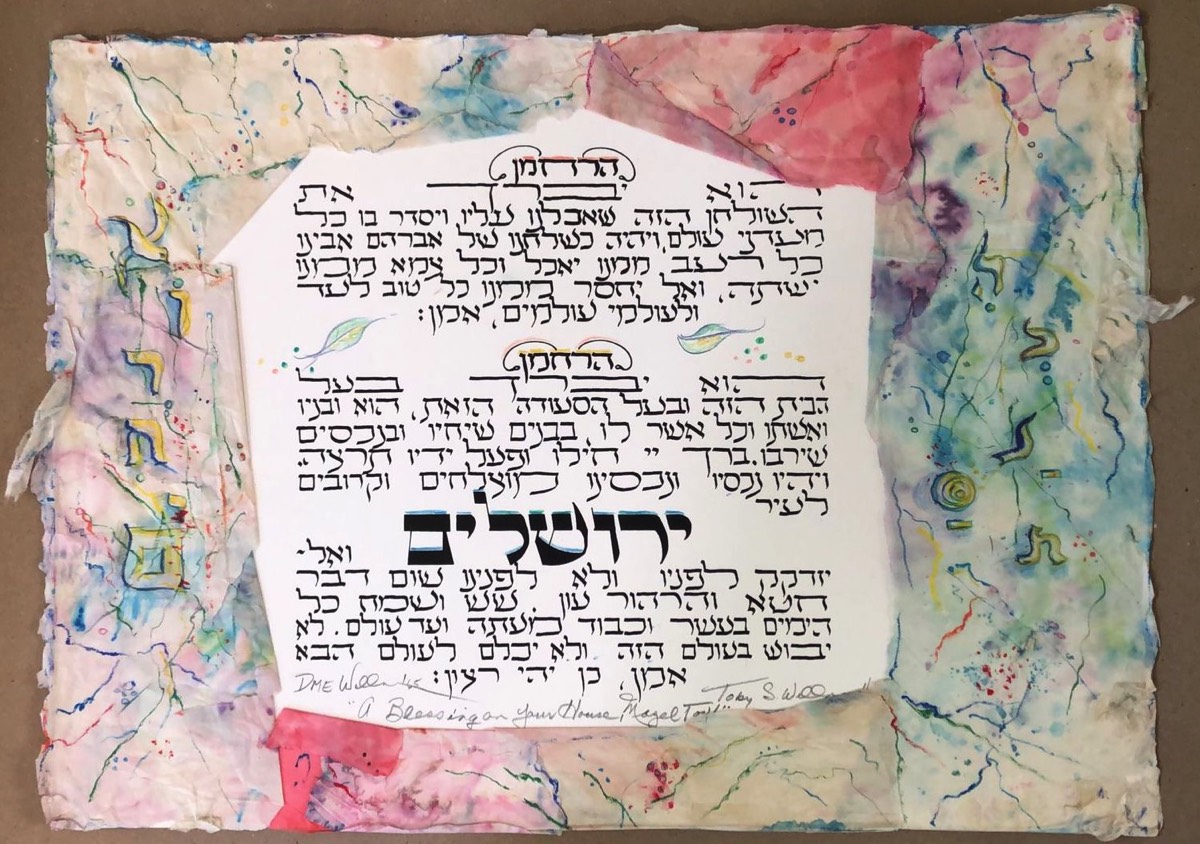 הרחמן
הוא יברך את
השולחן הזה שאכלנו עליו ויסדר בו כל
מעדני עולם, ויהיה כשלחנו של אברהם אבינו
כל רעב ממנו יאכל וכל צמא ממנו
ישתה, ואל יחסר ממנו כל טוב לעד
ולעולמי עולמים, אמן:
הרחמן
הוא יברך בעל
הבית הזה ובעל הסעודה הזאת, הוא ובניו
ואשתו וכל אשר לו, בבנים שיחיו ובנכסים
שירבו. ברך יי חילו ופעל ידיו תרצה,
ויהיו נכסיו ונכסינו מוצלחים וקרובים
לעיר
ירושלים ואל-
יזדקק לפניו ולא לפנינו שום דבר
חטא והרהור עון. שש ושמח כל
הימים בעשר וכבוד מעתה ועד עולם. לא
יבוש בעולם הזה ולא יכלם לעולם הבא
אמן, כן יהי רצון:
DME Toby S
"A Blessing on Your House Mazel Tov!"